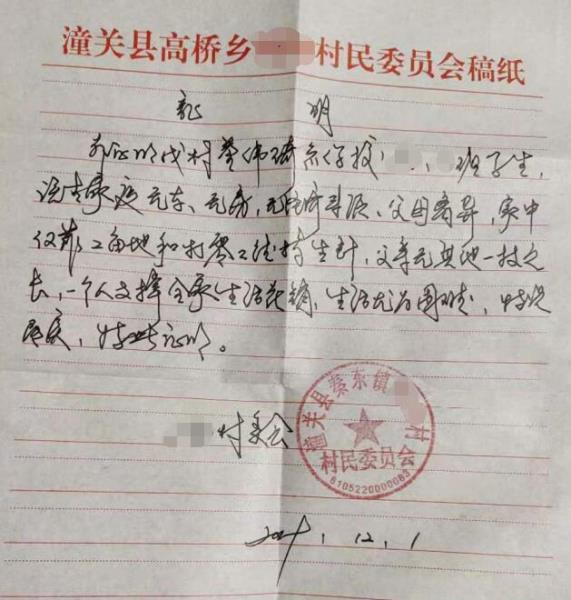 潼关县高桥乡 村民委员会稿纸
证 明
兹证明我村 系你校 班学生，
该生家庭无车、无房，无经济来源、父母离异，家中
仅靠二亩地和打零工维持生计，父亲无其他一技之
长，一个人支撑全家生活花销，生活尤为困难，情况
属实，特此证明。
村委会
潼关县秦东镇 村
村民委员会
6105220000063
.12.1